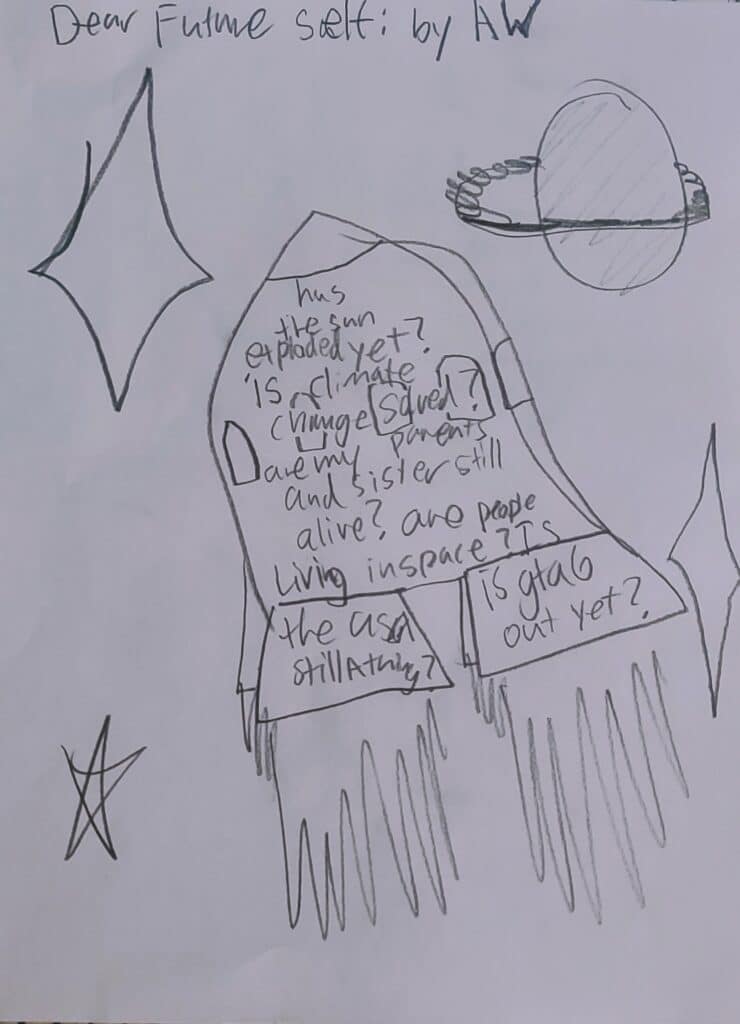 Dear Future self: by AW
has
the sun
exploded yet?
is climate
change solved?
are my parents
and sister still
alive? are people
Living in space? Is
the usa
still A thing?
is gta6
out yet?